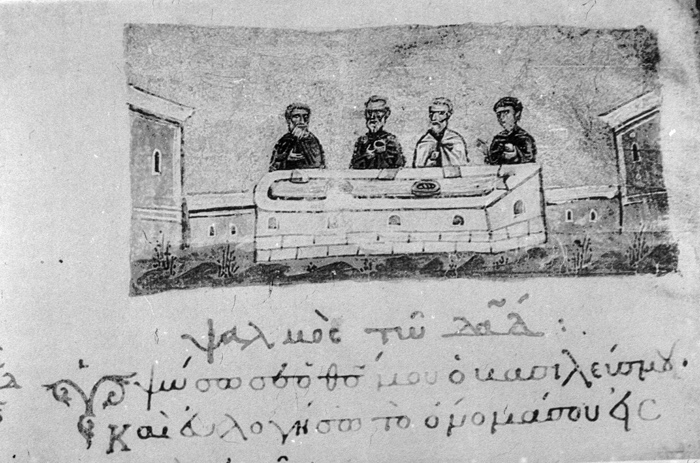 ψαλμὸς τῶ δᾱδ̄ :
Ὑψώσω σε ὁ θ̅ς̅ μου ὁ βασιλεύς μου·
Καὶ εὐλογήσω τὸ ὄνομά σου εἰς